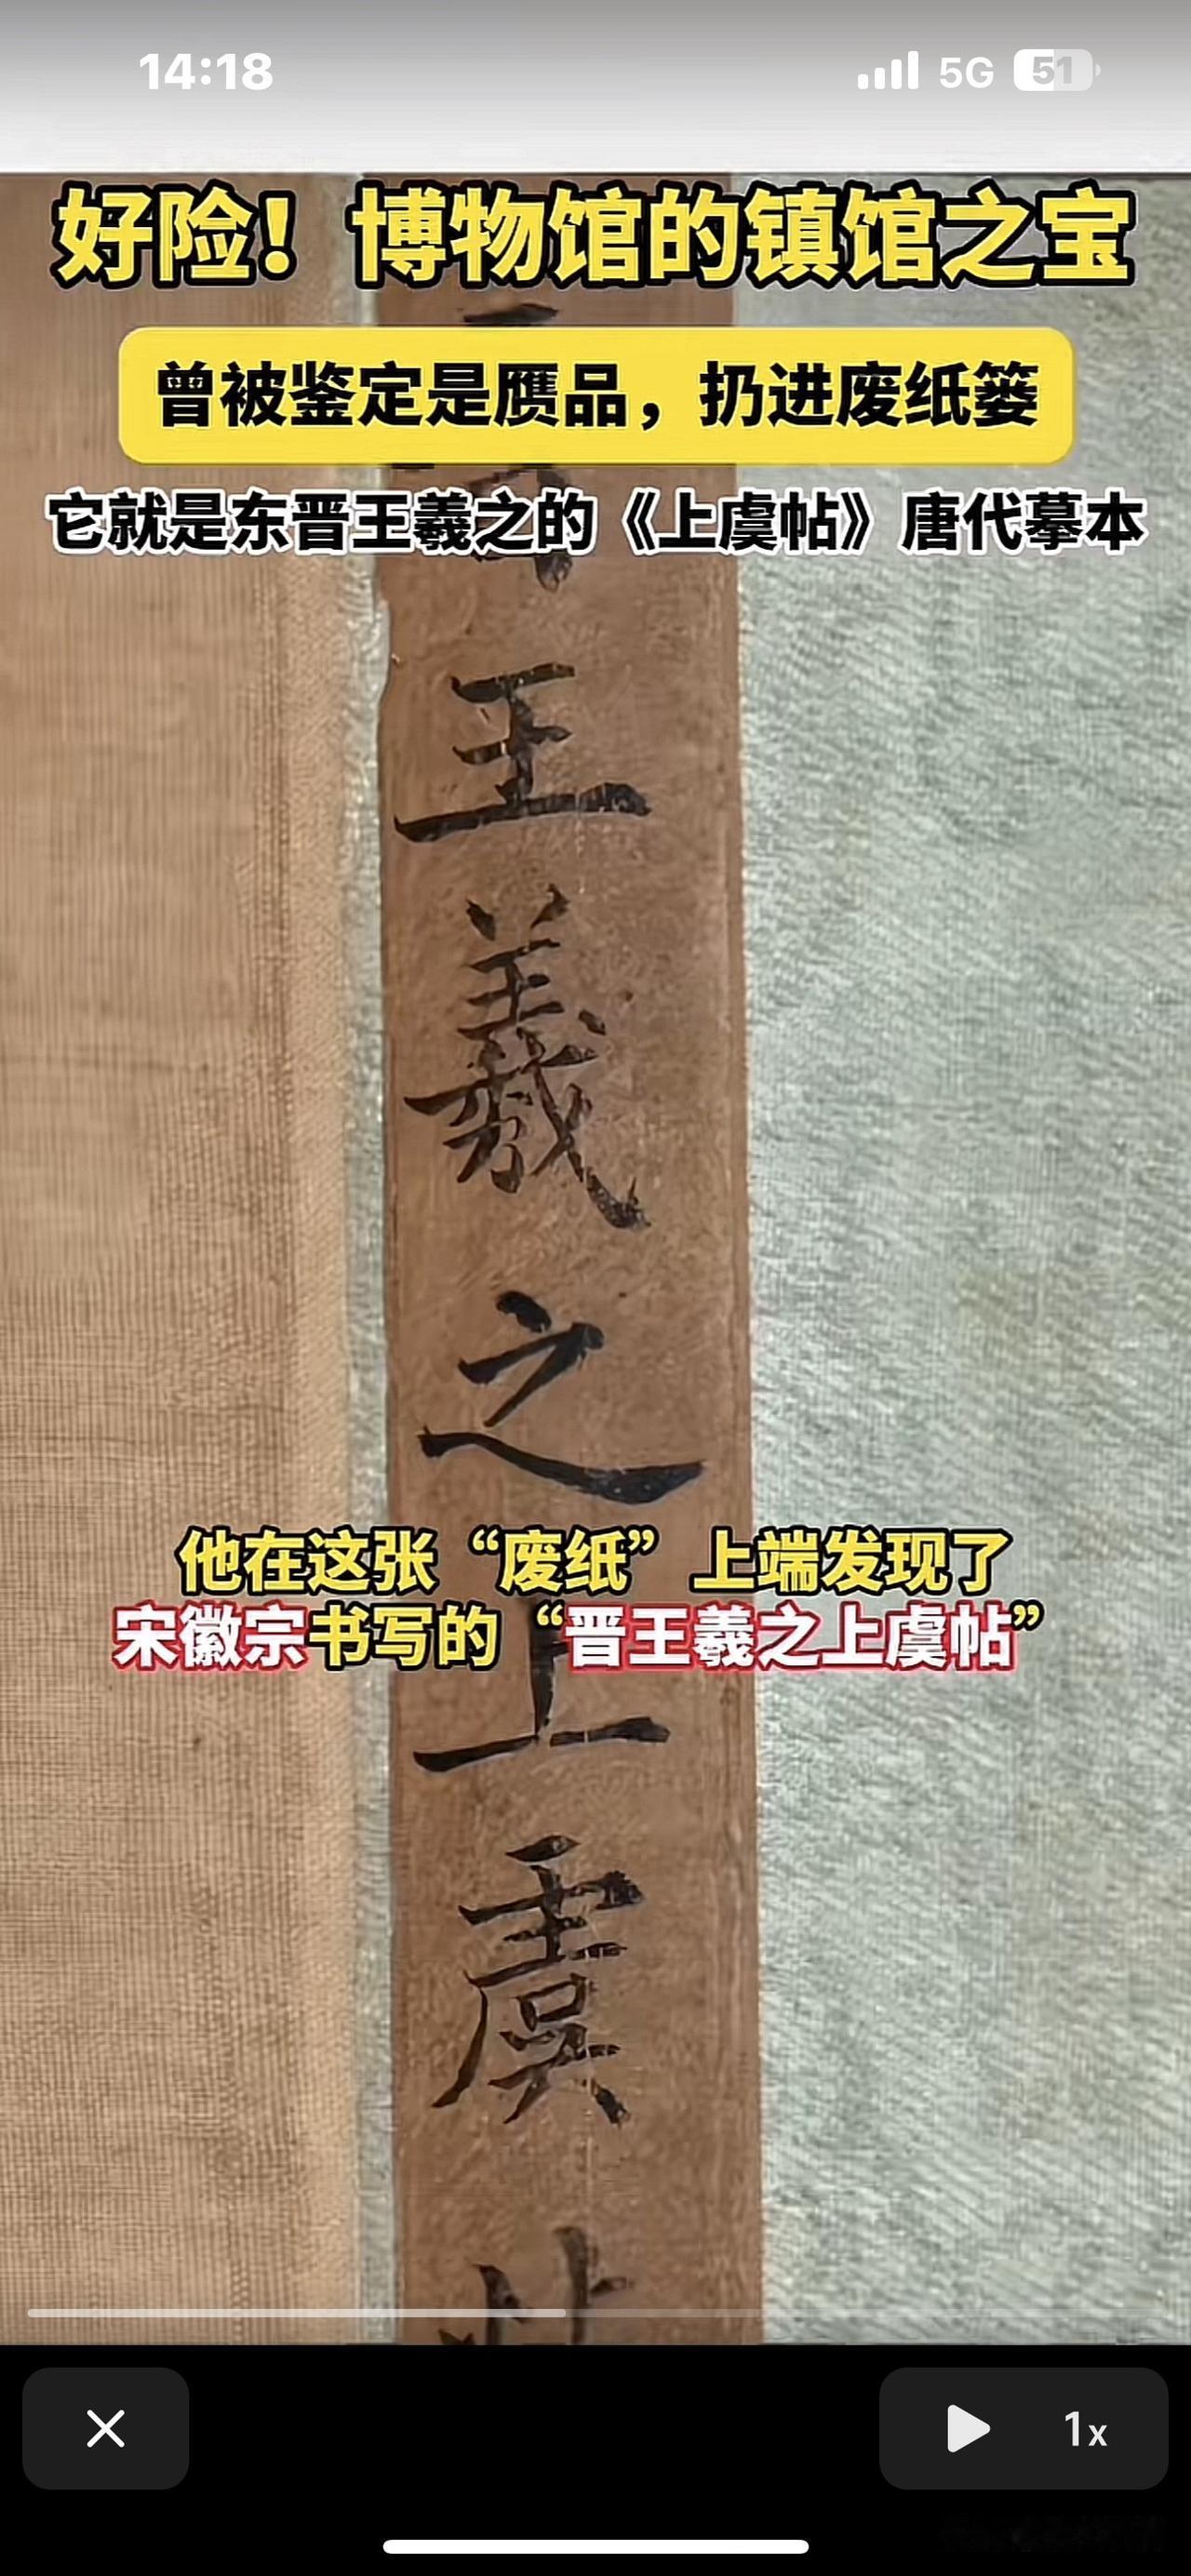 14:18
5G
51
好险！博物馆的镇馆之宝
曾被鉴定是赝品，扔进废纸篓
它就是东晋王羲之的《上虞帖》唐代摹本
王
羲
之
他在这张“废纸”上端发现了
宋徽宗书写的“晋王羲之上虞帖”
上
虞
1x